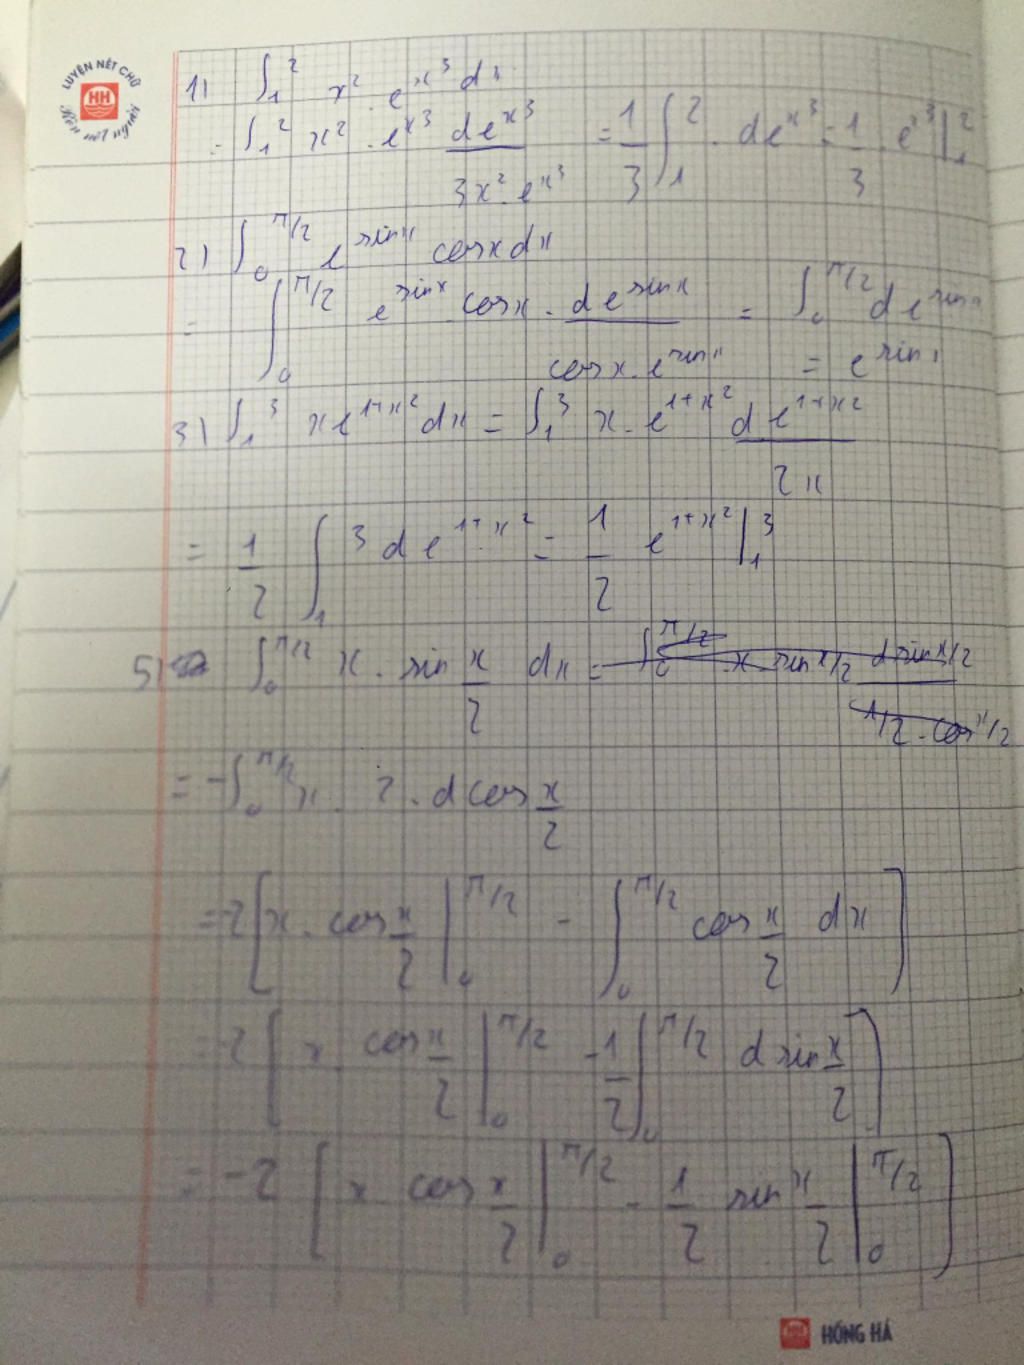 LUYỆN NÉT CHỮ
HH
Rèn nết người
1) ∫₁² x² . e^x³ dx
= ∫₁² x² . e^x³ de^x³ / 3x² . e^x³ = 1/3 ∫₁² . de^x³ = 1/3 . e^x³ |₁²
2) ∫₀^π/2 e^sinx cosx dx
= ∫₀^π/2 e^sinx cosx . de^sinx / cosx . e^sinx = ∫₀^π/2 de^sinx
= e^sinx
3) ∫₁³ xe^1+x² dx = ∫₁³ x . e^1+x² de^1+x² / 2x
= 1/2 ∫₁³ de^1+x² = 1/2 e^1+x² |₁³
5) ∫₀^π/2 x . sin x/2 dx = ∫₀^π/2 x sin x/2 d sin x/2 / 1/2 . cos x/2
= -∫₀^π/2 x . 2 . d cos x/2
= -2 [ x . cos x/2 |₀^π/2 - ∫₀^π/2 cos x/2 dx ]
= -2 [ x cos x/2 |₀^π/2 - 1/2 ∫₀^π/2 d sin x/2 ]
= -2 [ x cos x/2 |₀^π/2 - 1/2 sin x/2 |₀^π/2 ]
HỒNG HÀ